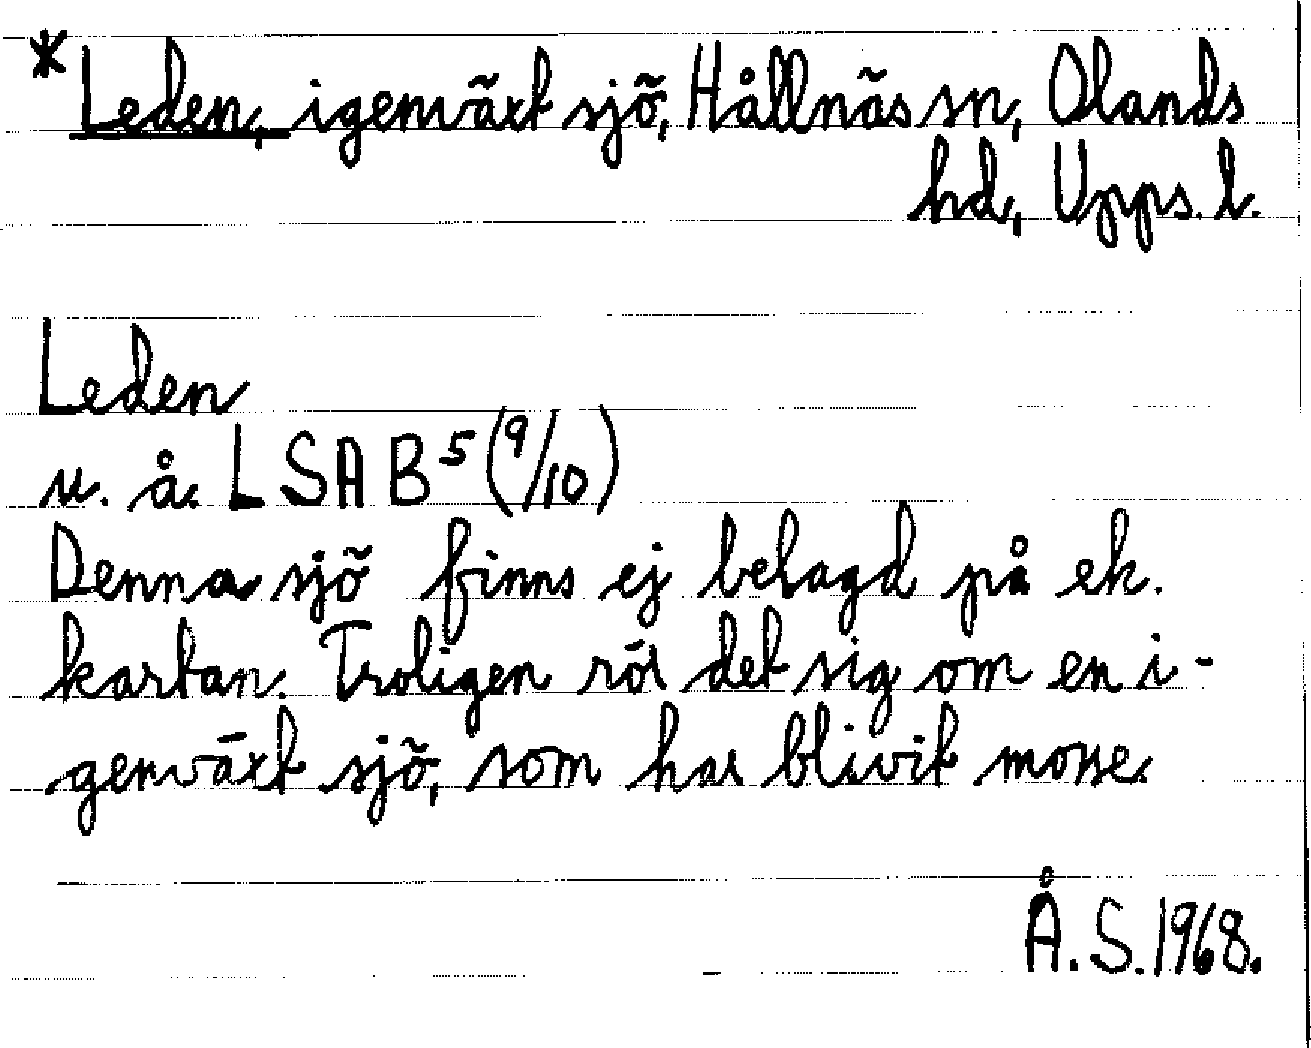 * Leden, igenväxt sjö, Hållnäs sn, Olands
hd, Upps. l.
Leden
u. å. LSA B⁵ (9/10)
Denna sjö finns ej belagd på ek.
kartan. Troligen rör det sig om en i-
genväxt sjö, som har blivit mosse.
Å. S. 1968.